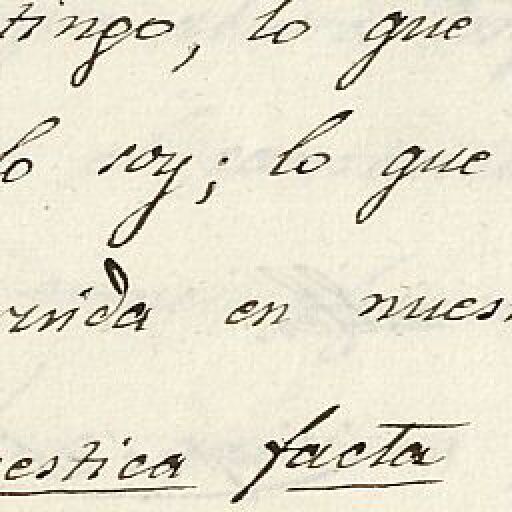 tingo, lo que
lo soy; lo que
en nues
estica facta